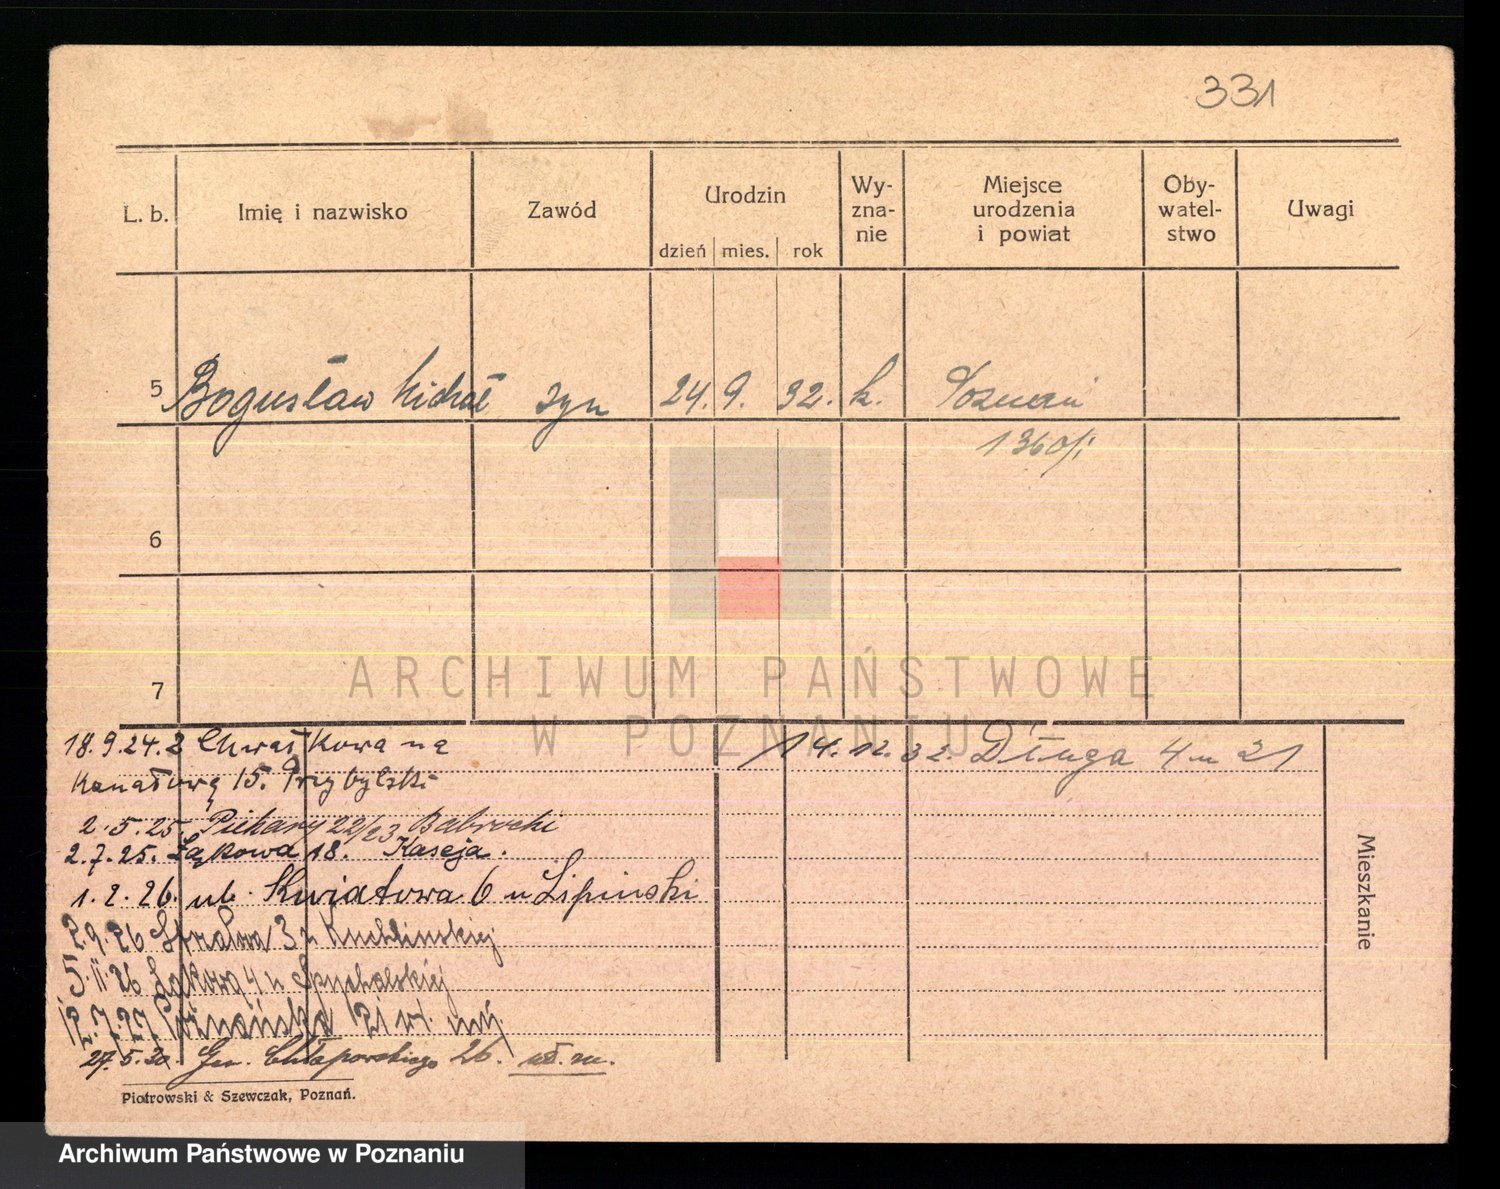 331
L. b. Imię i nazwisko Zawód Urodzin dzień mies. rok Wy-zna-nie Miejsce urodzenia i powiat Oby-watel-stwo Uwagi
5 Bogusław Michał syn 24. 9. 32. k. Poznań
1360/i
6
7
ARCHIWUM PAŃSTWOWE
W POZNANIU
18.9.24. z Chwałkowa na
Kanałową 15. Przybylski
2.5.25. Piekary 22/23 Babrocki
2.7.25. Łąkowa 18. Kaseja.
1.2.26. ul. Kwiatowa 6 u Lipinski
2.9.26 3 u Kuchlinskiej
5.11.26 Łąkowa 4 u Spychalskiej
12.7.27 Poznańska 21
27.5.30. Gen. Chłapowskiego 26. wł. m.
14.12.32. Długa 4 m 21
Mieszkanie
Piotrowski & Szewczak, Poznań.
Archiwum Państwowe w Poznaniu